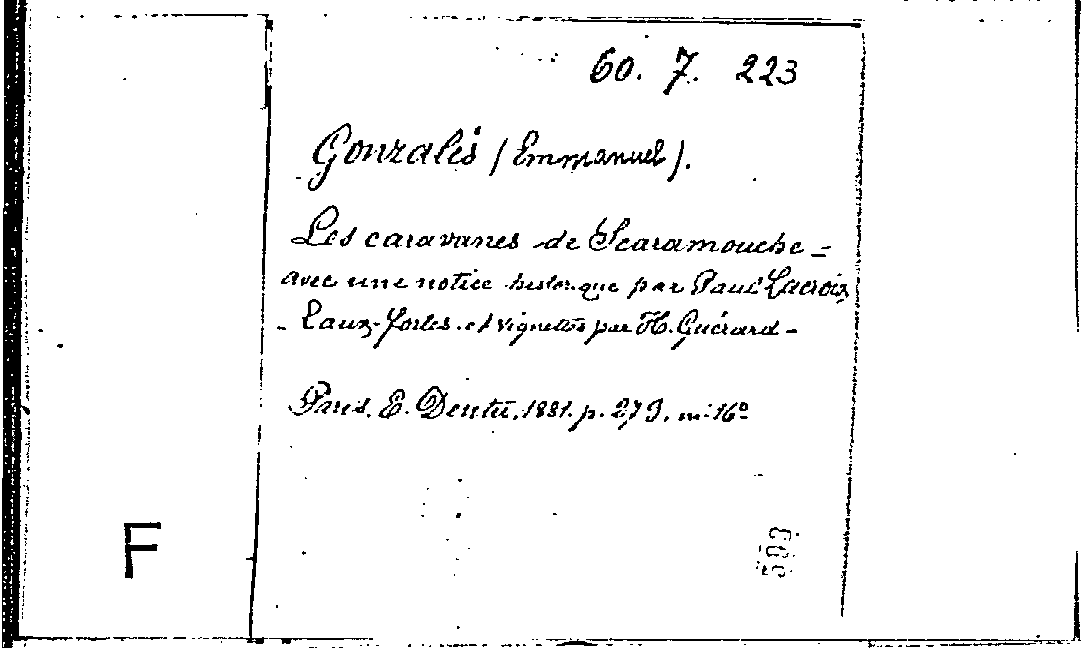 60. 7. 223
Gonzalès (Emmanuel).
Les caravanes de Scaramouche -
avec une notice historique par Paul Lacroix
- Eaux-fortes et vignettes par H. Guérard -
Paris. E. Dentu. 1881. p. 279. in-16º
F
593